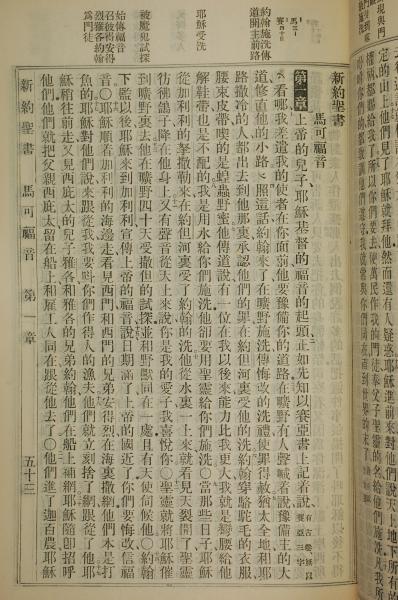 三卷道
定的山上他們見了耶穌就拜他然而還有人疑惑耶穌進前來對他們說天上地下所有的
權柄都賜給我了所以你們要去使萬民作我的門徒奉父子聖靈的名給他們施洗凡我所
新約聖書
馬可福音
第一章
上帝的兒子耶穌基督的福音的起頭正如先知以賽亞書上記着說
有古卷無以賽亞三字
看哪我差遣我的使者在你面前他要豫備你的道路在曠野有人聲喊着說豫備主的
道修直他的小路照這話約翰來了在曠野施洗傳悔改的洗禮使罪得赦猶太全地和耶
路撒冷的人都出去到他那裏承認他們的罪在約但河裏受他的洗約翰穿駱駝毛的衣服
腰束皮帶喫的是蝗蟲野蜜他傳道說有一位在我以後來能力比我更大我就是彎腰給他
解鞋帶也是不配的我是用水給你們施洗他卻要用聖靈給你們施洗〇當那些日子耶穌
從加利利的拏撒勒來在約但河裏受了約翰的洗他從水裏一上來就看見天裂開了聖靈
彷彿鴿子降在他身上又有聲音從天上來說你是我的愛子我喜悅你〇聖靈就將耶穌催
到曠野裏去他在曠野四十天受撒但的試探並和野獸同在一處且有天使伺候他〇約翰
下監以後耶穌來到加利利宣傳上帝的福音說日期滿了上帝的國近了你們要悔改信福
音〇耶穌順着加利利的海邊走看見西門和西門的兄弟安得烈在海裏撒網他們本是打
魚的耶穌對他們說來跟從我我要叫你們作得人的漁夫他們就立刻捨了網跟從了他耶
穌稍往前走又見西庇太的兒子雅各和雅各的兄弟約翰他們在船上補網耶穌隨即招呼
他們他們就把父親西庇太留在船上和雇工人同在跟從他去了〇他們進了迦百農耶穌
約翰施洗傳
道開主前路
馬三
賽四十
耶穌受洗
被魔鬼試探
始傳福音
召彼得安得
烈雅各約翰
爲門徒
新約聖書 馬可福音 第一章 五十三